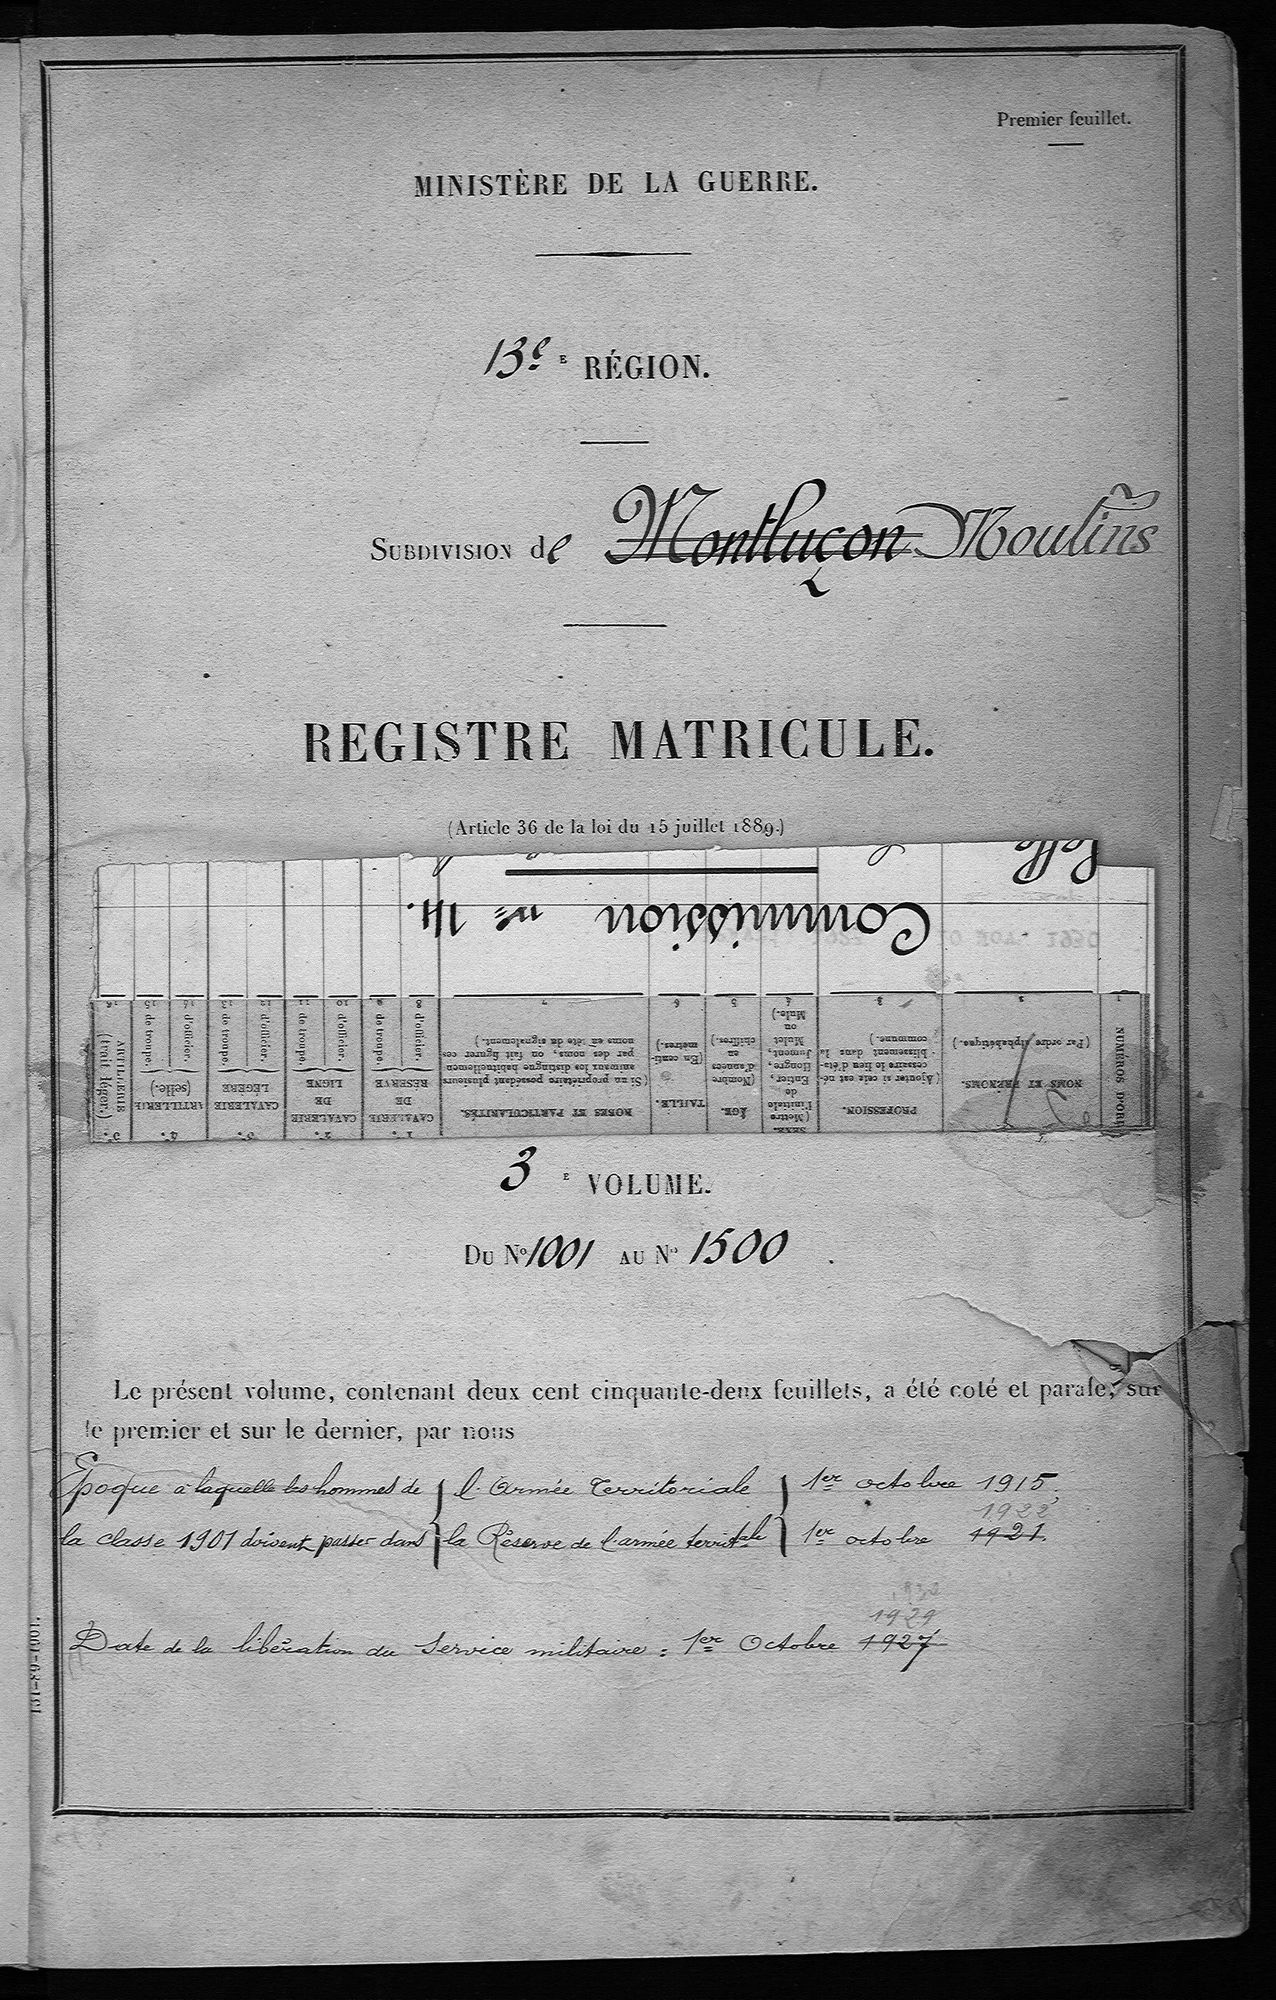 Premier feuillet.
MINISTÈRE DE LA GUERRE.
13e E RÉGION.
SUBDIVISION de Montluçon Moulins
REGISTRE MATRICULE.
(Article 36 de la loi du 15 juillet 1889.)
Selle
Commission n° 14.
1 2 3 4 5 6 7 8 9 10 11 12 13 14 15 16
NUMÉROS D'ORD
NOMS ET PRÉNOMS.
(Par ordre alphabétique.)
PROFESSION.
(Ajouter si cela est né-
cessaire le lieu d'éta-
blissement dans la
commune.)
SEXE.
(Mettre
l'initiale
de
Entier,
Hongre,
Jument,
Mulet
ou
Mule.)
ÂGE.
(Nombre
d'années
en
chiffres.)
TAILLE.
(En centi-
mètres.)
ROBES ET PARTICULARITÉS.
(Si un propriétaire possédant plusieurs
animaux les distingue habituellement
par des noms, on fait figurer ces
noms en tête du signalement.)
1°.
CAVALERIE
DE
RÉSERVE
d'officier.
de troupe
2°.
CAVALERIE
DE
LIGNE
d'officier.
de troupe.
3°.
CAVALERIE
LÉGÈRE
d'officier.
de troupe.
4°.
ARTILLERIE
(selle.)
d'officier.
de troupe.
5°.
ARTILLERIE
(trait léger.)
3 E VOLUME.
DU N° 1001 AU N° 1500.
Le présent volume, contenant deux cent cinquante-deux feuillets, a été coté et parafé, sur
le premier et sur le dernier, par nous
Epoque à laquelle les hommes de { l'Armée Territoriale } 1er octobre 1915.
1922
la classe 1901 doivent passer dans { la Réserve de l'armée territale } 1er octobre 1921.
1929
Date de la libération du Service militaire : 1er Octobre 1927
131-89-1901.